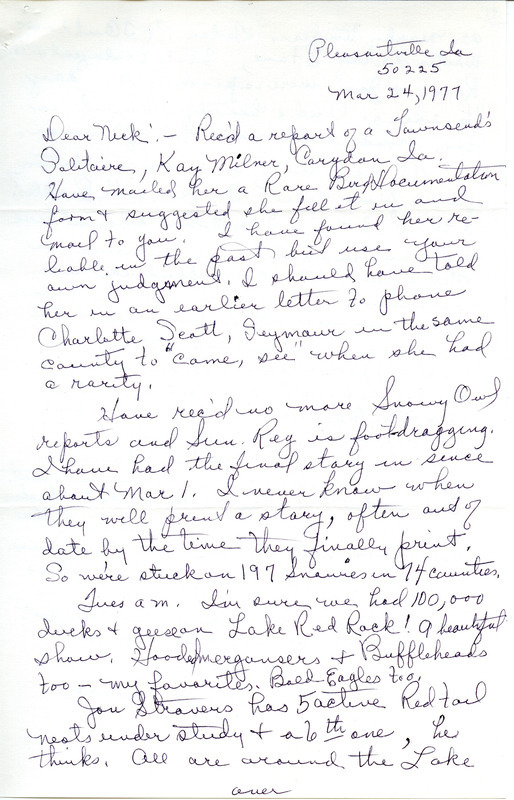 Pleasantville Ia
50225
Mar 24, 1977
Dear Nick:- Rec'd a report of a Townsend's
Solitaire, Kay Milner, Corydon Ia.
Have mailed her a Rare Bird Documentation
form & suggested she fill it in and
mail to you. I have found her re-
liable in the past but use your
own judgment. I should have told
her in an earlier letter to phone
Charlotte Scott, Seymour in the same
county to "come, see" when she had
a rarity.
Have rec'd no more Snowy Owl
reports and Sun. Reg is footdragging.
I have had the final story in since
about Mar 1. I never know when
they will print a story, often out of
date by the time they finally print.
So we're stuck on 197 Snowies in 74 counties.
Tues a.m. I'm sure we had 100,000
ducks & geese on Lake Red Rock! A beautiful
show. Hooded mergansers & Buffleheads
too - my favorites. Bald Eagles too.
Jon Stravers has 5 active Redtail
nests under study & a 6th one, he
thinks. All are around the Lake
over